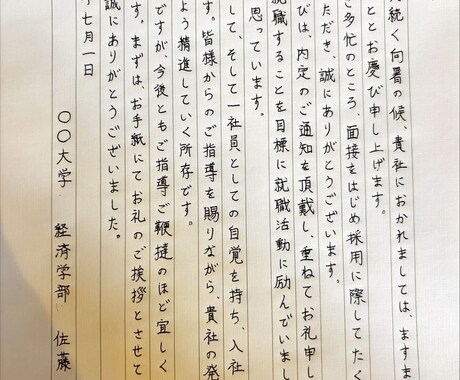 続く向暑の候、貴社におかれましては、ますま
ととお慶び申し上げます。
ご多忙のところ、面接をはじめ採用に際してたく
ただき、誠にありがとうございます。
びは、内定のご通知を頂戴し、重ねてお礼申し
就職することを目標に就職活動に励んでいまし
思っています。
して、そして一社員としての自覚を持ち、入社
す。皆様からのご指導を賜りながら、貴社の発
よう精進していく所存です。
ですが、今後ともご指導ご鞭撻のほど宜しく
す。まずは、お手紙にてお礼のご挨拶とさせて
誠にありがとうございました。
年七月一日
〇〇大学 経済学部 佐藤